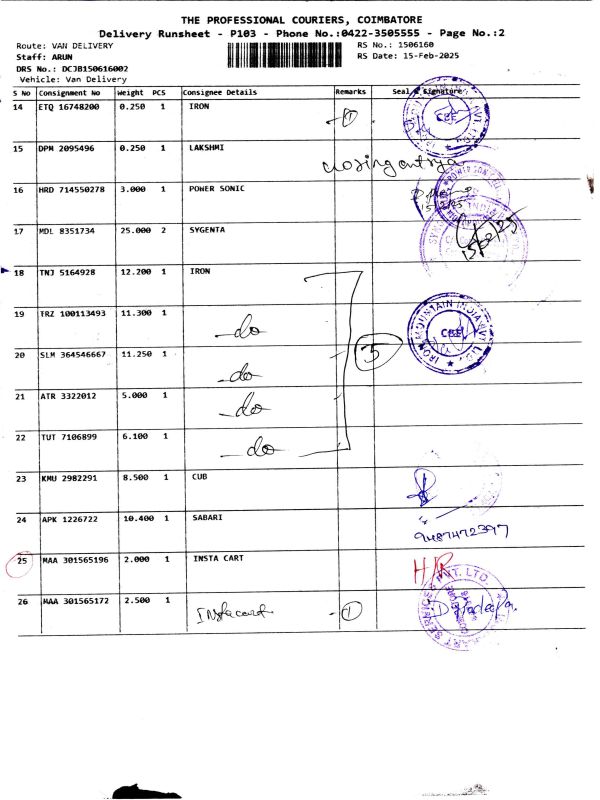 THE PROFESSIONAL COURIERS, COIMBATORE
Delivery Runsheet - P103 - Phone No.:0422-3505555 - Page No.:2
Route: VAN DELIVERY RS No.: 1506160
Staff: ARUN RS Date: 15-Feb-2025
DRS No.: DCJB150616002
Vehicle: Van Delivery
S No Consignment No Weight PCS Consignee Details Remarks Seal & Signature
14 ETQ 16748200 0.250 1 IRON 1 CBE
15 DPM 2095496 0.250 1 LAKSHMI
16 HRD 714550278 3.000 1 POWER SONIC
17 MDL 8351734 25.000 2 SYGENTA 15/2/25
18 TNJ 5164928 12.200 1 IRON
19 TRZ 100113493 11.300 1 do IRON MOUNTAIN INDIA PVT. LTD. CBE
20 SLM 364546667 11.250 1 do 5
21 ATR 3322012 5.000 1 do
22 TUT 7106899 6.100 1 do
23 KMU 2982291 8.500 1 CUB
24 APK 1226722 10.400 1 SABARI 9487472397
25 MAA 301565196 2.000 1 INSTA CART
26 MAA 301565172 2.500 1 Instacart 1